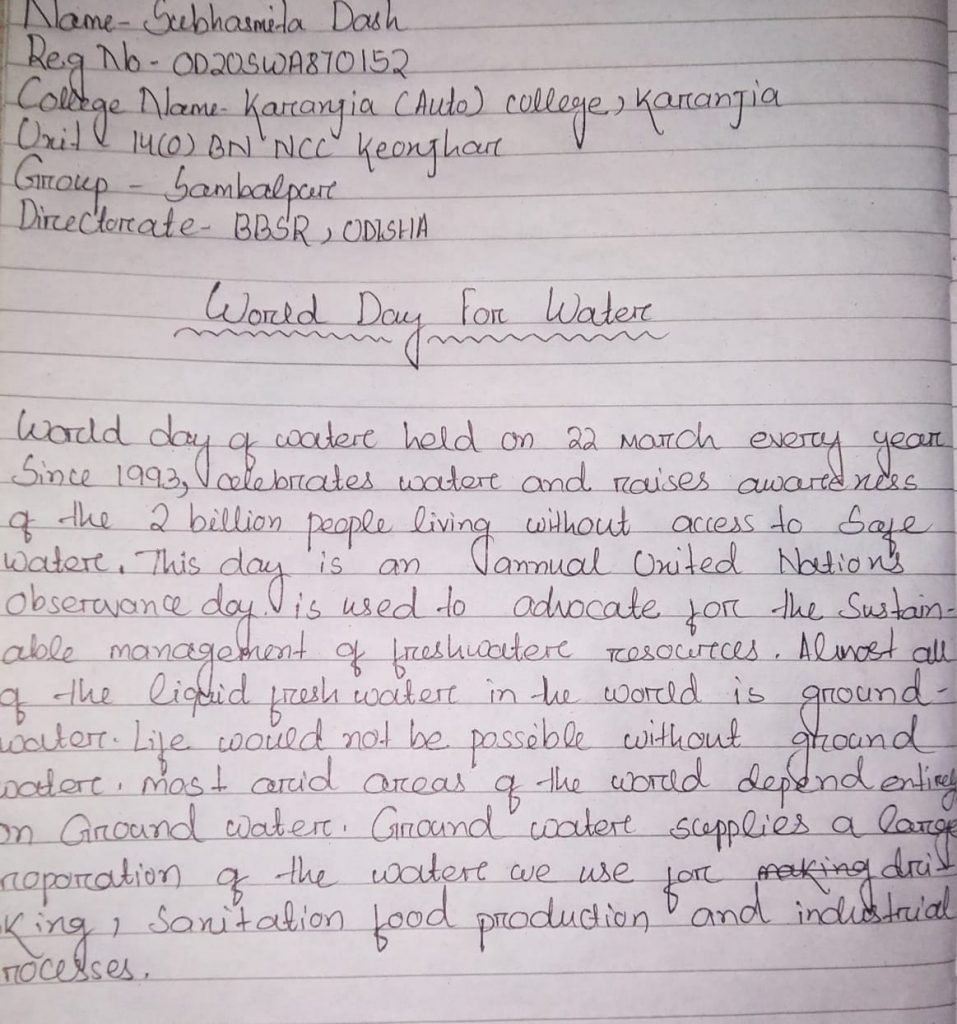 Name- Subhasmita Dash
Reg No - OD20SWA870152
College Name- Karanjia (Auto) college, Karanjia
Unit 14(O) BN NCC Keonjhar
Group - Sambalpur
Directorate- BBSR, ODISHA
World Day For Water
World day of water held on 22 March every year
Since 1993, celebrates water and raises awareness
of the 2 billion people living without access to Safe
water. This day is an annual United Nation's
Observance day is used to advocate for the Sustain-
able management of freshwater resources. Almost all
of the liquid fresh water in the world is ground-
water. Life would not be possible without ground
water. Most arid areas of the world depend entirely
on Ground water. Ground water supplies a large
roporation of the water we use for making drin
king, Sanitation food production and industrial
rocesses.